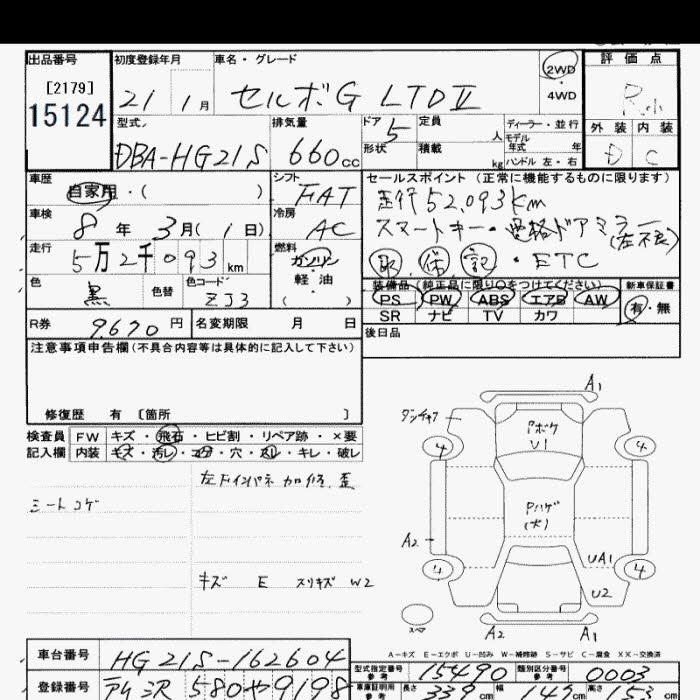 出品番号 初度登録年月 車名・グレード 評価点
[2179] 15124
21 1月 セルボG LTDⅡ 2WD 4WD R小
型式 排気量 ドア 定員 人 ディーラー・並行 外装 内装
DBA-HG21S 660cc 5 形状 積載 kg モデル年式 年 ハンドル 左・右 D C
車歴 シフト セールスポイント(正常に機能するものに限ります)
自家用・( ) FAT 走行52,093km
車検 冷房 スマートキー・電格ドアミラー
8年3月(1日) AC (左不良)
走行 燃料
5万2千093km ガソリン 取 保 記・ETC
色 色替 色コード 軽油 装備品(純正品に限り○をつけてください) 新車保証書
黒 ZJ3 ( ) PS PW ABS エアB AW 有・無
SR ナビ TV カワ
R券 9,670円 名変期限 月 日 後日品
注意事項申告欄(不具合内容等は具体的に記入して下さい)
修復歴 有 〔箇所 〕
検査員 FW キズ・飛石・ヒビ割・リペア跡・×要
記入欄 内装 キズ・汚レ・コゲ・穴・スレ・キレ・破レ
左Fインパネ加修.歪
シートコゲ
キズ E スリキズ W2
A1
Pボケ
U1
4 4
Pハゲ
(大)
A2
UA1
4 4
U2
スペア
A2 A1
A-キズ E-エクボ U-凹み W-補修跡 S-サビ C-腐食 XX-交換済
車台番号 HG21S-162604 型式指定番号 参考 15490 類別区分番号 参考 0003
登録番号 所沢 580 や 9198 車庫証明用 参考 長さ 339cm 幅 147cm 高さ cm